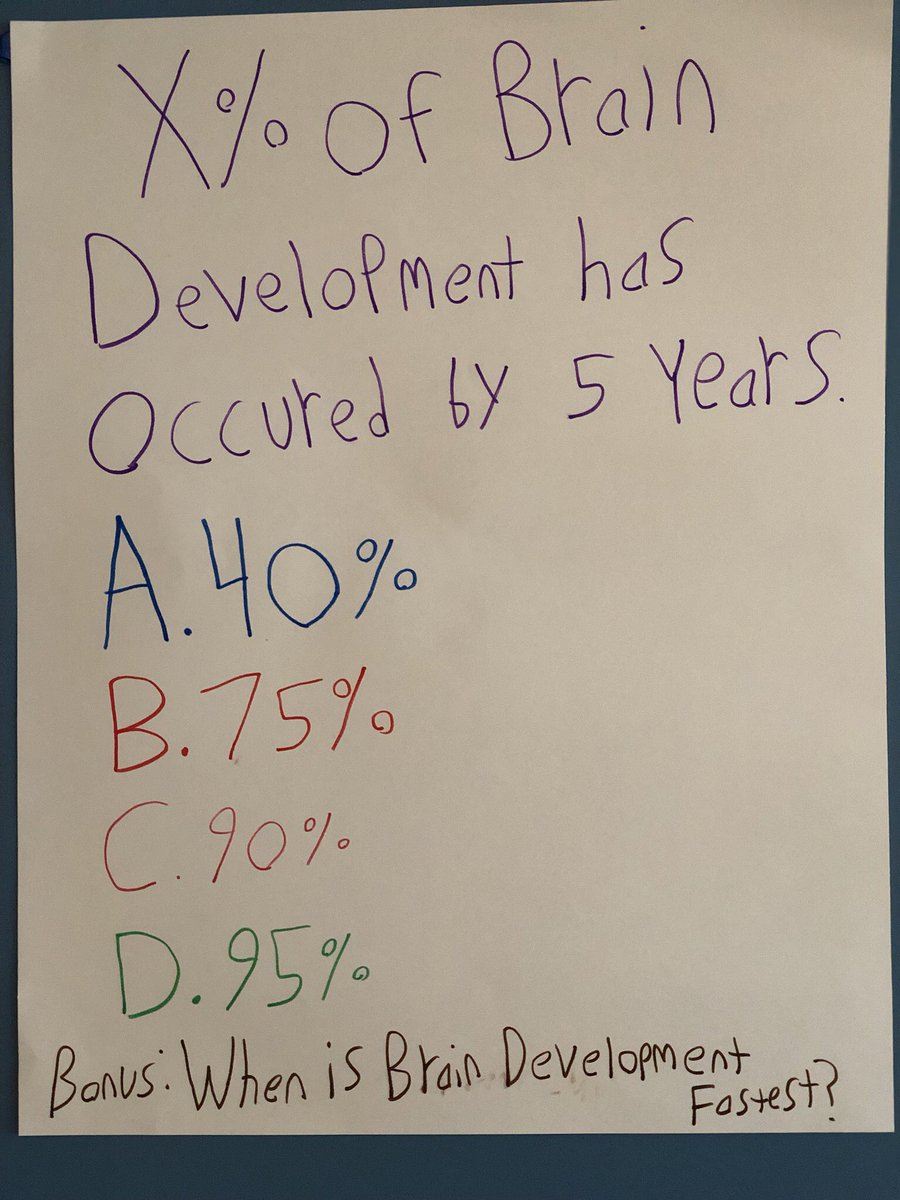 X% of Brain
Development has
Occured by 5 Years.
A. 40%
B. 75%
C. 90%
D. 95%
Bonus: When is Brain Development
Fastest?